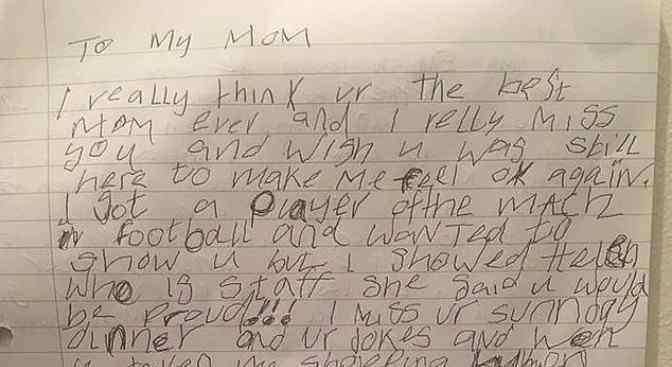 TO MY MOM
I really think ur the best
MOM ever and I relly Miss
you and wish u was still
here to make Me feel ok again.
I got a Player ofthe MACH
in football and wanTed to
show u but I showed Helen
who is staff she said u would
be proud!!! I Miss ur sunnday
dinner and ur Jokes and weh
u taken me shopping